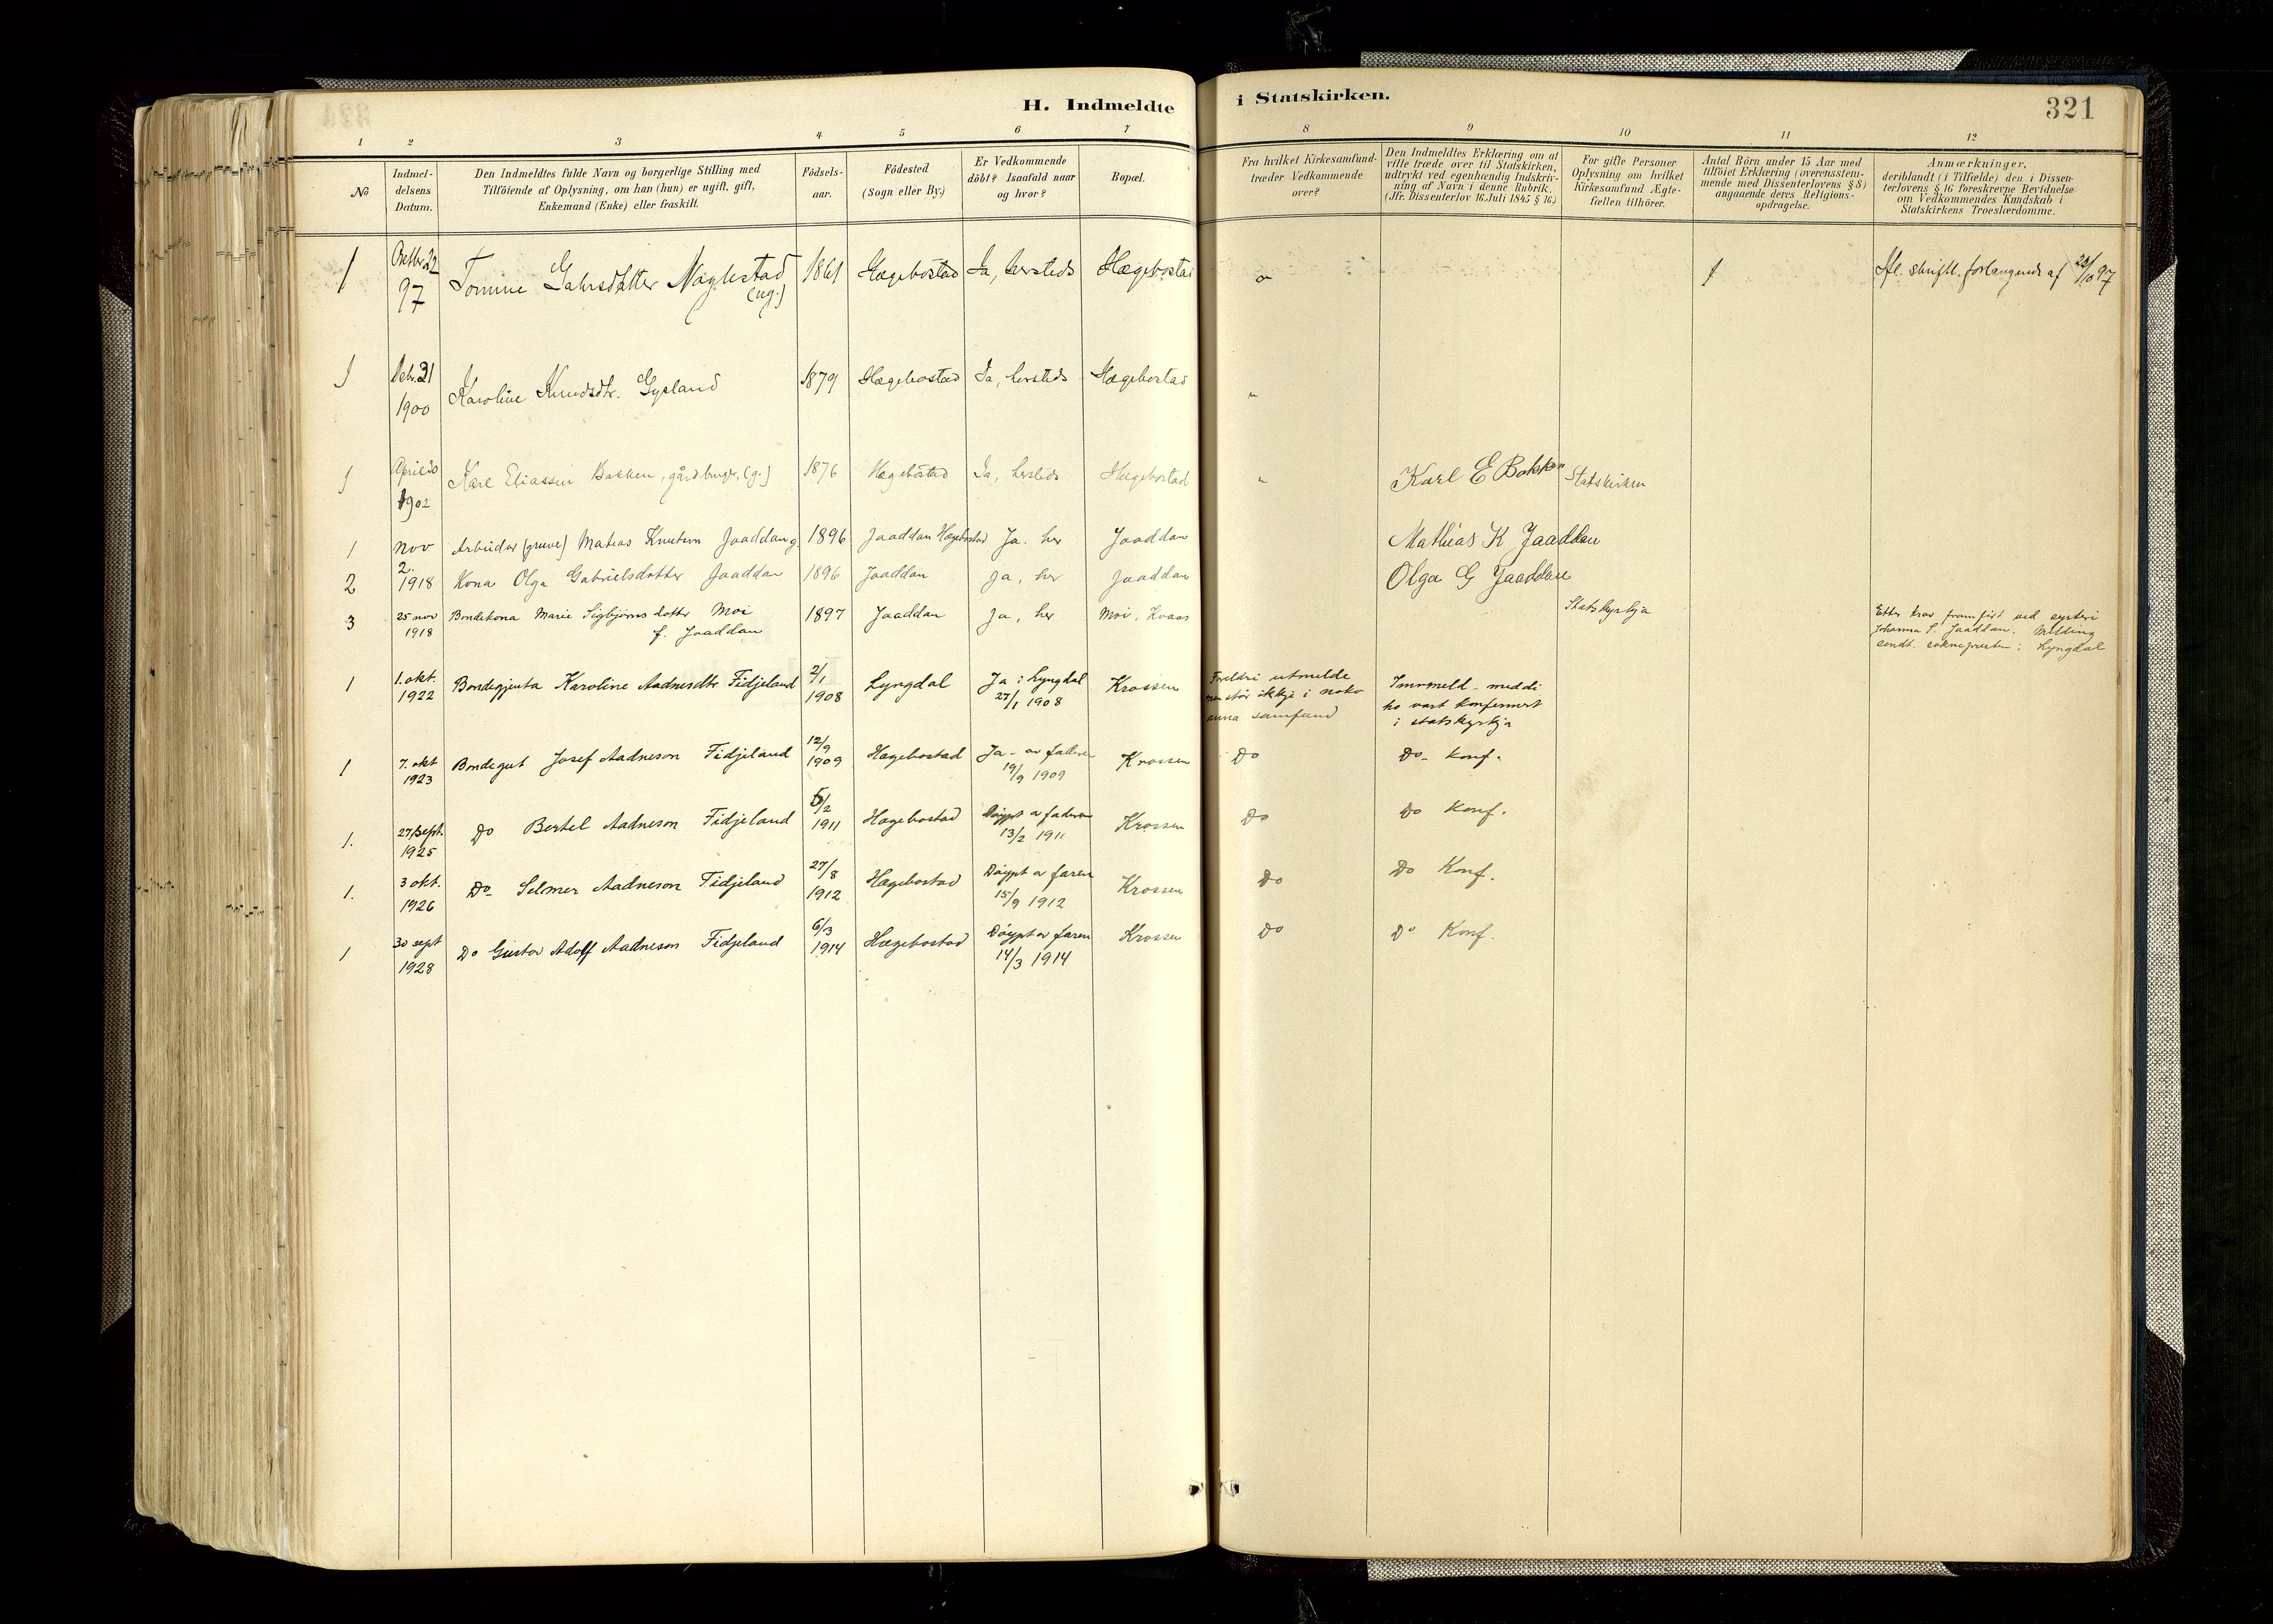 H. Indmeldte i Statskirken.
321
1 2 3 4 5 6 7 8 9 10 11 12
No
Indmel-
delsens
Datum.
Den Indmeldtes fulde Navn og borgerlige Stilling med
Tilföiende af Oplysning, om han (hun) er ugift, gift,
Enkemand (Enke) eller fraskilt.
Födsels-
aar.
Födested
(Sogn eller By.)
Er Vedkommende
döbt? Isaafald naar
og hvor?
Bopæl.
Fra hvilket Kirkesamfund-
træder Vedkommende
over?
Den Indmeldtes Erklæring om at
ville træde over til Statskirken,
udtrykt ved egenhændig Indskriv-
ning af Navn i denne Rubrik.
(Jfr. Dissenterlov 16. Juli 1845 § 16.)
For gifte Personer
Oplysning om hvilket
Kirkesamfund Ægte-
fællen tilhörer.
Antal Börn under 15 Aar med
tilföiet Erklæring (overensstem-
mende med Dissenterlovens § 8)
angaaende deres Religions-
opdragelse.
Anmærkninger,
deriblandt (i Tilfælde) den i Dissen-
terlovens § 16 foreskrevne Bevidnelse
om Vedkommendes Kundskab i
Statskirkens Troeslærdomme.
1 22 97 Tomine Naglestad (ug.) 1861 Hægebostad Ja, hersteds Hægebostad 1 skriftl. forlangende af 22/10 97
1 31 1900 Karoline Knudsdtr. Gysland 1879 Hægebostad Ja, hersteds Hægebostad
1 April 1902 Karl Eliassen Bakken, gårdbruger, (g.) 1876 Hægebostad Ja, hersteds Hægebostad Karl E Bakken Statskirken
1 Nov 2. 1918 Arbeidar (gruve) Matias Knutson Jaaddan g. 1896 Jaaddan Hægebostad Ja. her Jaaddan Mathias K Jaaddan
2 Kona Olga Gabrielsdotter Jaaddan 1896 Jaaddan Ja, her Jaaddan Olga G Jaaddan
3 25 nov 1918 Bondekona Marie Sigbjørnsdotter Moi 1897 Jaaddan Ja, her Moi, Kvaas Statskyrkja
f. Jaaddan
Etter krav framført ved systeri
Johanna S. Jaaddan. Melding
sendt soknepresten i Lyngdal
1 1. okt. 1922 Bondegjenta Karoline Aadnesdtr Fidjeland 2/1 1908 Lyngdal Ja i Lyngdal 27/1 1908 Krossen
Foreldri utmelde
men står ikkje i noko
anna samfund
Innmeld - meddi
ho vart konfermert
i statskyrkja
1 7. okt 1923 Bondegut Josef Aadneson Fidjeland 12/9 1909 Hægebostad Ja - av faderen 19/9 1909 Krossen Do Do - Konf.
1. 27 sept. 1925 Do Bertel Aadneson Fidjeland 5/2 1911 Hægebostad Døypt av faderen 13/2 1911 Krossen Do Do Konf.
1. 3 okt. 1926 Do Selmer Aadneson Fidjeland 27/8 1912 Hægebostad Døypt av faren 15/9 1912 Krossen Do Do Konf.
1 30 sept 1928 Do Gustav Adolf Aadneson Fidjeland 6/3 1914 Hægebostad Døypt av faren 14/3 1914 Krossen Do Do Konf.